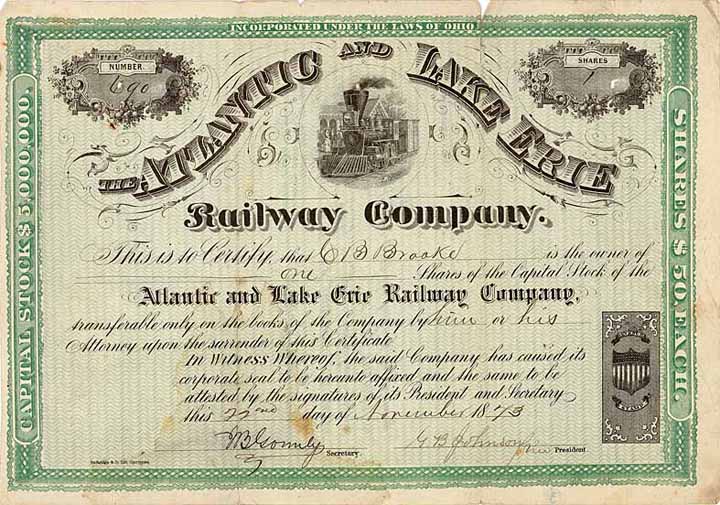 INCORPORATED UNDER THE LAWS OF OHIO.
NUMBER
690
SHARES
1
THE ATLANTIC AND LAKE ERIE
Railway Company.
CAPITAL STOCK $ 5,000,000.
SHARES $ 50 EACH.
This is to Certify, that C B Brooke is the owner of
one Shares of the Capital Stock of the
Atlantic and Lake Erie Railway Company,
transferable only on the books of the Company by him or his
Attorney upon the surrender of this Certificate.
In Witness Whereof, the said Company has caused its
corporate seal to be hereunto affixed and the same to be
attested by the signatures of its President and Secretary
this 22nd day of November 1873
Secretary.
G B Johnson
President.
CAPITAL
STOCK